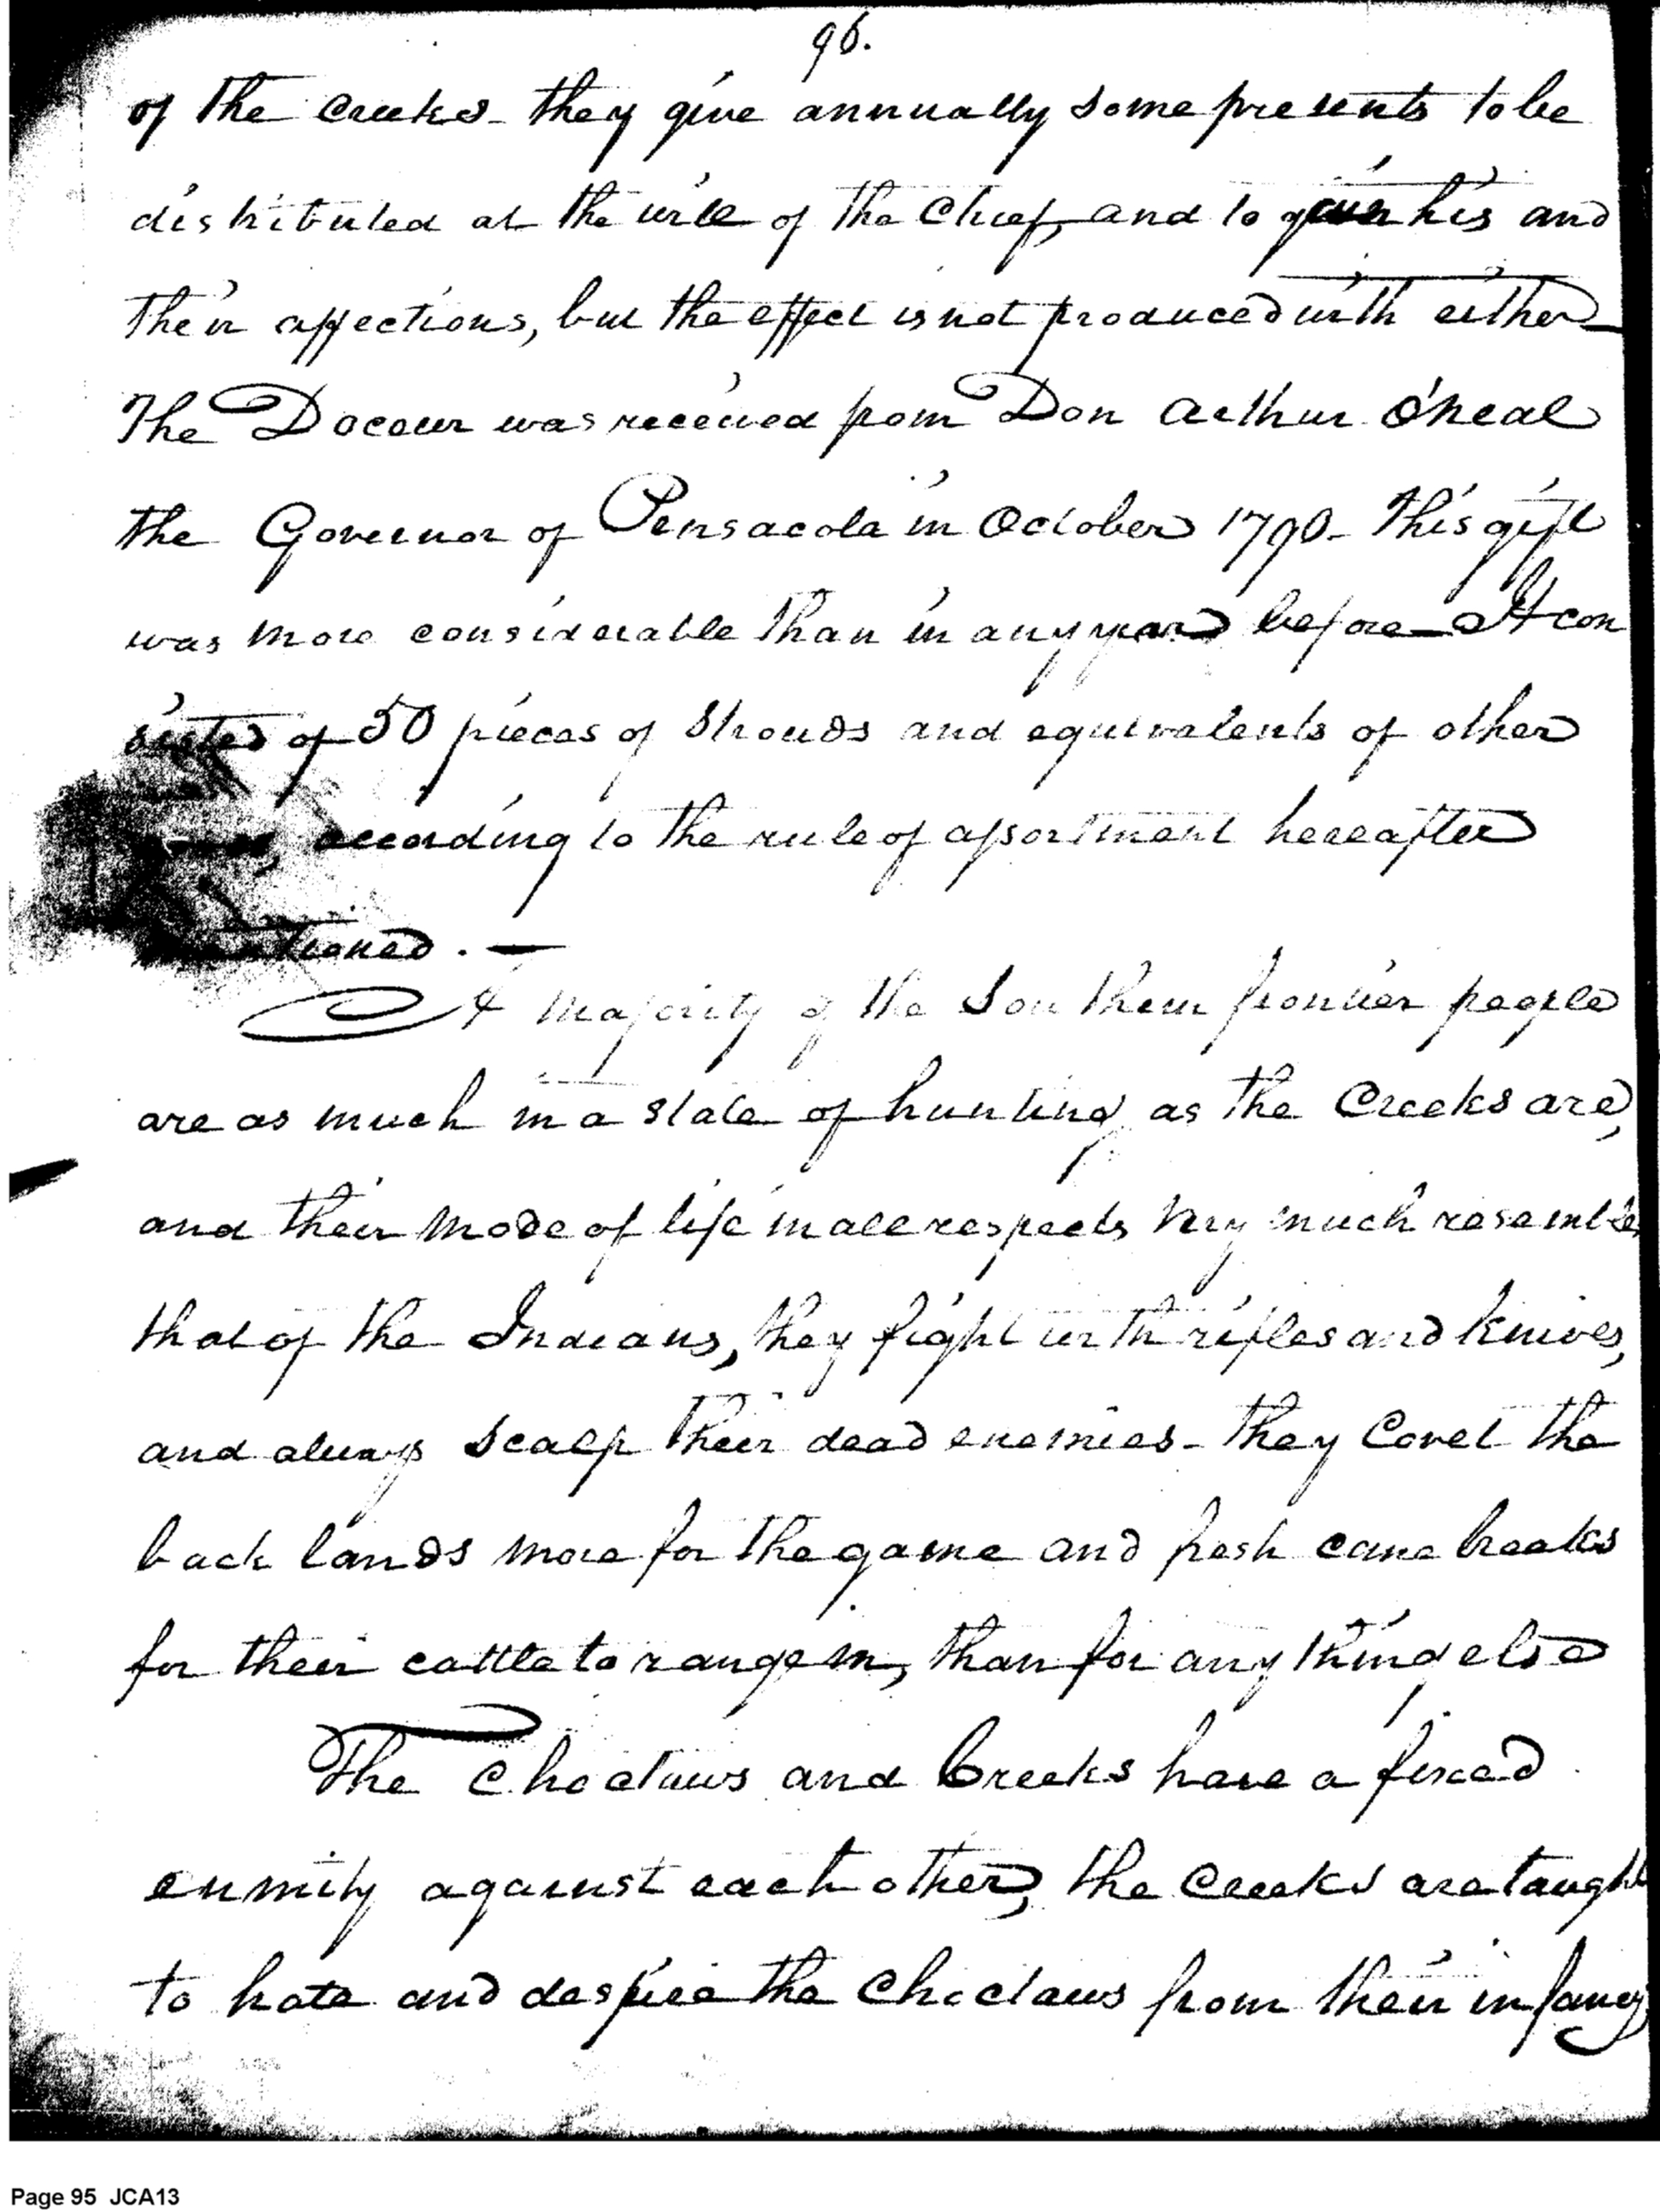 96.
of the Creeks - they give annually some presents to be
distributed at the will of the Chief, and to gain his and
their affections, but the effect is not produced with either -
The Doceur was received from Don Arthur O'Neal
the Governor of Pensacola in October 1790 - This gift
was more considerable than in any year before - It con
sisted of 50 pieces of Strouds and equivalents of other
according to the rule of assortment hereafter
mentioned. -
A majority of the Southern frontier people
are as much in a state of hunting as the Creeks are,
and their mode of life in all respects very much resembles
that of the Indians, they fight with rifles and knives,
and always scalp their dead enemies - they Covet the
back lands more for the game and fresh cane breaks
for their cattle to range in, than for any thing else
The Choctaws and Creeks have a fixed
enmity against each other, the Creeks are taught
to hate and despise the Choctaws from their infancy,
Page 95 JCA13